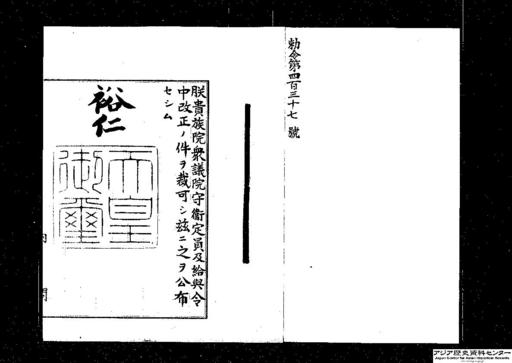 勅令第四百三十七號
朕貴族院衆議院守衞定員及給與令
中改正ノ件ヲ裁可シ玆ニ之ヲ公布
セシム
裕仁
天皇
御璽
内閣
アジア歴史資料センター
Japan Center for Asian Historical Records